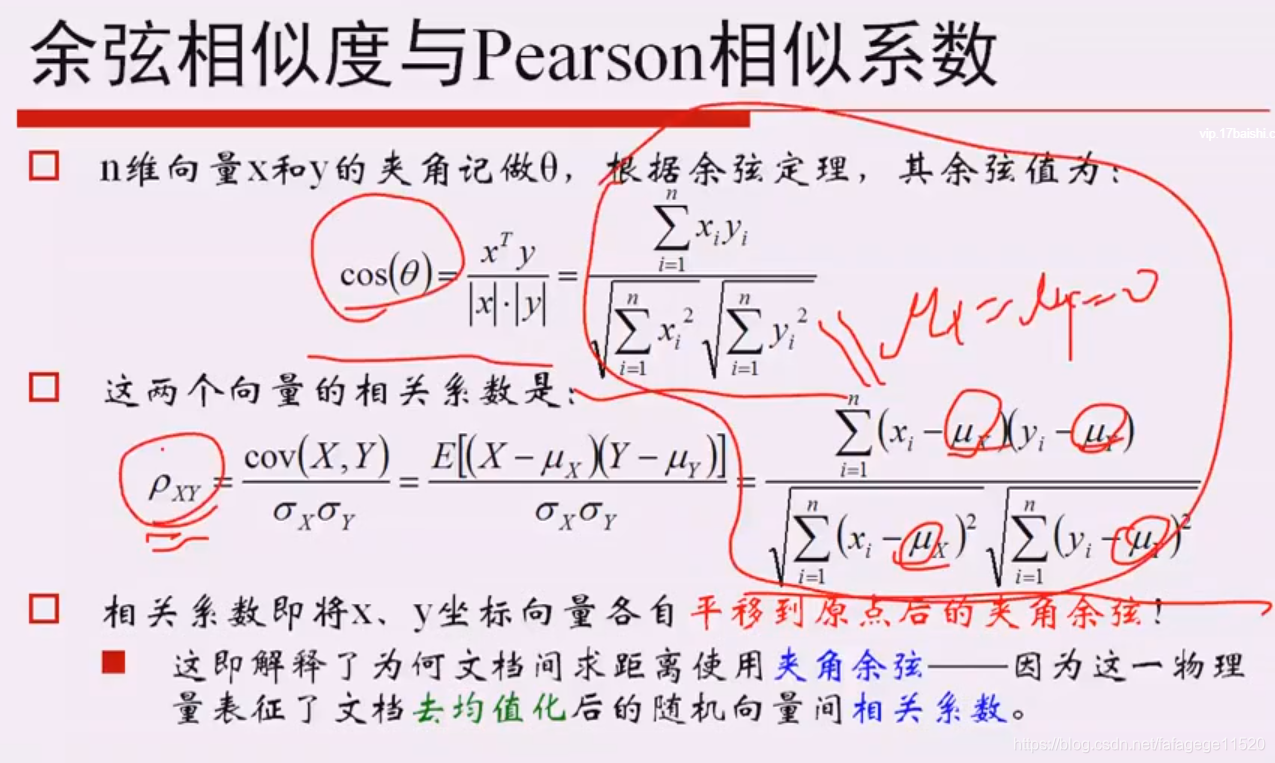 余弦相似度与Pearson相似系数
vip.17baishi.c
n维向量x和y的夹角记做θ，根据余弦定理，其余弦值为：
cos(θ) = x^T y / (|x|·|y|) = ∑_{i=1}^{n} x_i y_i / (√(∑_{i=1}^{n} x_i^2) √(∑_{i=1}^{n} y_i^2))
μx = μy = 0
这两个向量的相关系数是：
ρ_XY = cov(X,Y) / (σ_X σ_Y) = E[(X − μ_X)(Y − μ_Y)] / (σ_X σ_Y) = ∑_{i=1}^{n} (x_i − μ_X)(y_i − μ_Y) / (√(∑_{i=1}^{n} (x_i − μ_X)^2) √(∑_{i=1}^{n} (y_i − μ_Y)^2))
相关系数即将x、y坐标向量各自平移到原点后的夹角余弦！
这即解释了为何文档间求距离使用夹角余弦——因为这一物理
量表征了文档去均值化后的随机向量间相关系数。
https://blog.csdn.net/fafagege11520